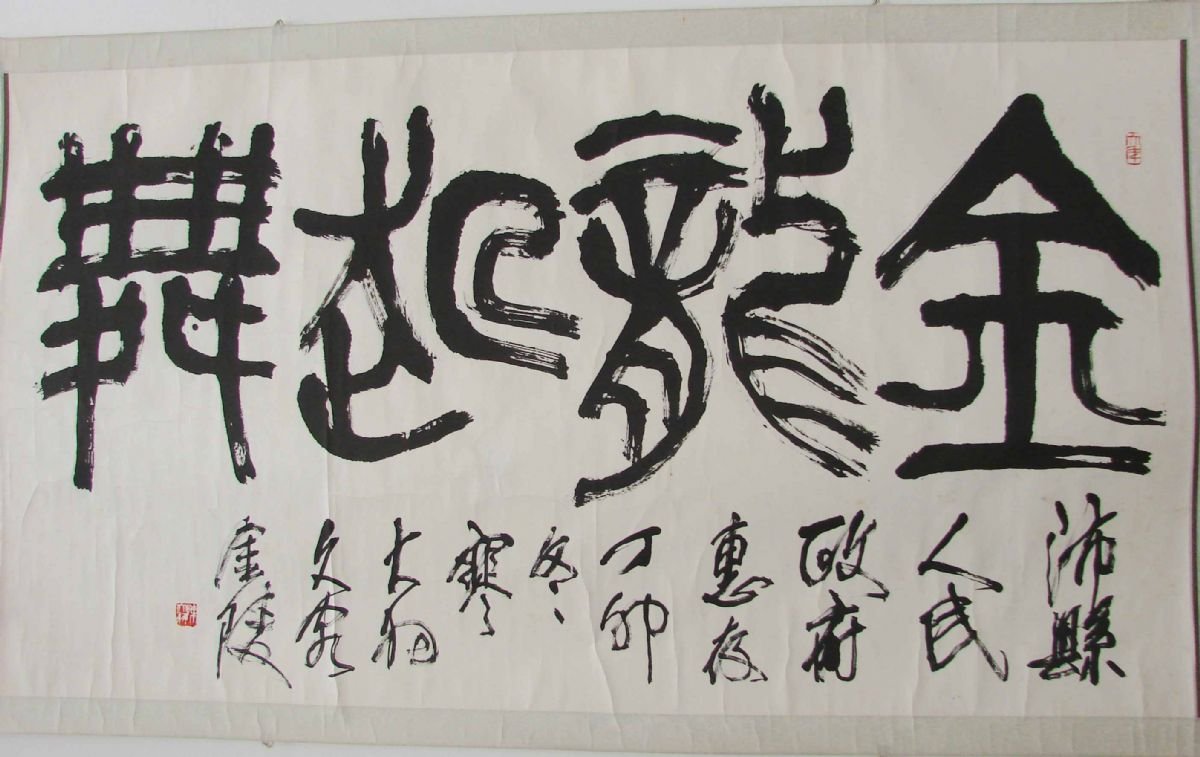 金龍起舞
沛縣
人民
政府
惠存
丁卯
冬
寒
大
久客
金陵